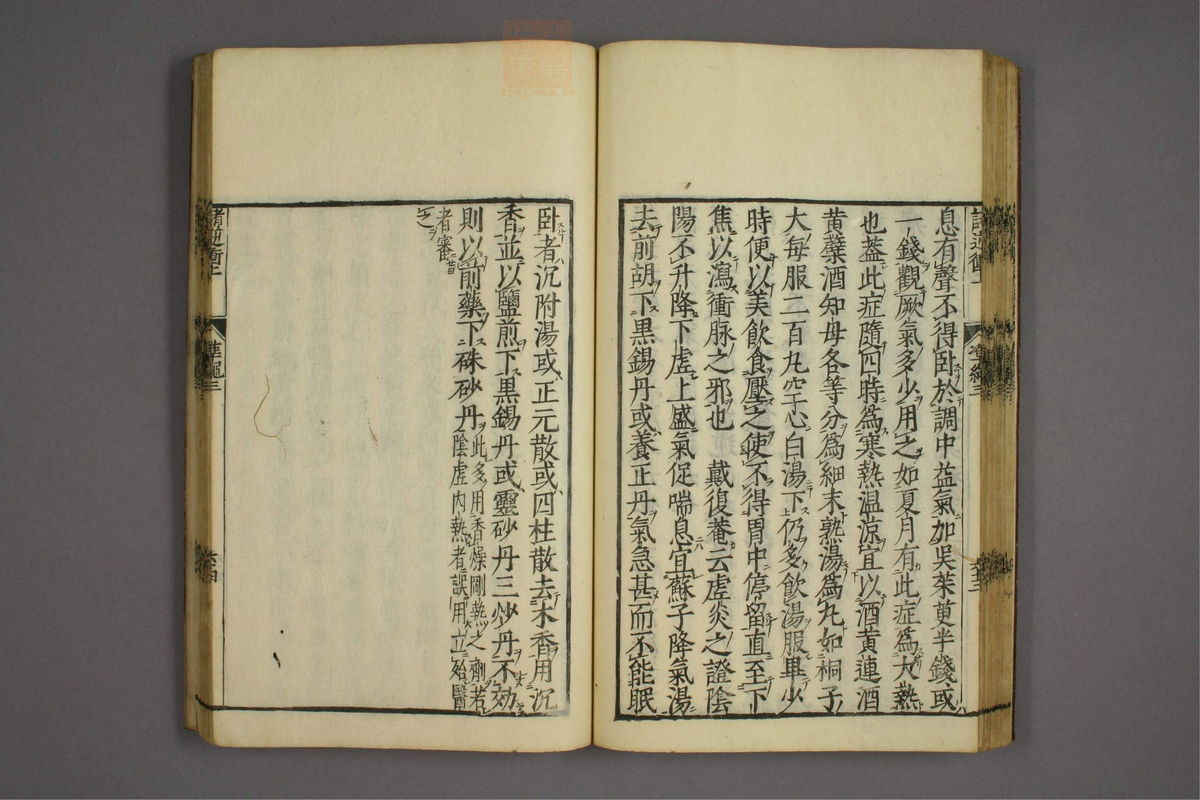 息有聲不得卧於調中益氣加吳茱萸半錢或
一錢觀厥氣多少用之如夏月有此症爲大熱
也葢此症隨四時爲寒熱温凉宜以酒黃連酒
黃蘗酒知母各等分爲細末熟湯爲丸如桐子
大每服二百丸空心白湯下仍多飲湯服畢少
時便以美飲食壓之使不得胃中停留直至下
焦以瀉衝脉之邪也　戴復菴云虛炎之證陰
陽不升降下虛上盛氣促喘息宜蘇子降氣湯
去前胡下黑錫丹或養正丹氣急甚而不能眠
卧者沉附湯或正元散或四柱散去木香用沉
香並以鹽煎下黑錫丹或靈砂丹三炒丹不効
則以前藥下硃砂丹此多用香燥剛熱之劑若
陰虛内熱者誤用立殆醫
者審
之
準繩三
六十四